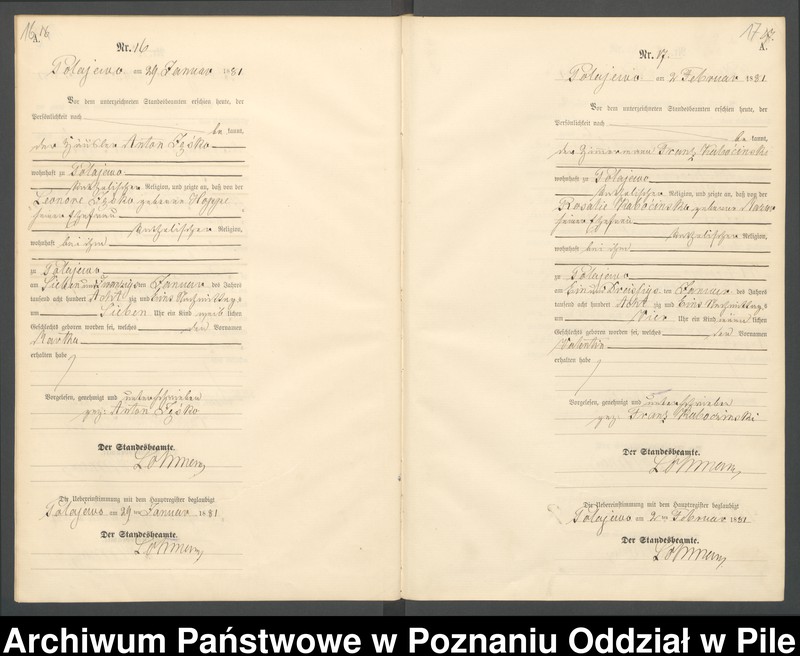 16 16.
A.
Nr. 16
Połajewo am 29 Januar 1881
Vor dem unterzeichneten Standesbeamten erschien heute, der
Persönlichkeit nach
be kannt,
der Häusler Anton
wohnhaft zu Połajewo
katholischer Religion, und zeigte an, daß von der
Leonore geborene Hoppe
seiner Ehefrau
katholischer Religion,
wohnhaft bei ihm
zu Połajewo
am Sieben und zwanzigsten Januar des Jahres
tausend acht hundert Acht zig und Eins Nachmittags
um Sieben Uhr ein Kind weib lichen
Geschlechts geboren worden sei, welches den Vornamen
Martha
erhalten habe
Vorgelesen, genehmigt und unterschrieben
gez. Anton
Der Standesbeamte.
Die Uebereinstimmung mit dem Hauptregister beglaubigt
Połajewo am 29 ten Januar 1881
Der Standesbeamte.
17 17.
A.
Nr. 17.
Połajewo am 2 Februar 1881
Vor dem unterzeichneten Standesbeamten erschien heute, der
Persönlichkeit nach
be kannt,
der Zimmermann Franz Kabociński
wohnhaft zu Połajewo
katholischer Religion, und zeigte an, daß von der
Rosalie Kabocińska geborene Mazur
seiner Ehefrau
katholischer Religion,
wohnhaft bei ihm
zu Połajewo
am Ein und Dreissigsten Januar des Jahres
tausend acht hundert Acht zig und Eins Nachmittags
um Vier Uhr ein Kind männ lichen
Geschlechts geboren worden sei, welches den Vornamen
Valentin
erhalten habe
Vorgelesen, genehmigt und unterschrieben
gez. Franz Kabocinski
Der Standesbeamte.
Die Uebereinstimmung mit dem Hauptregister beglaubigt
Połajewo am 2 ten Februar 1881
Der Standesbeamte.
Archiwum Państwowe w Poznaniu Oddział w Pile